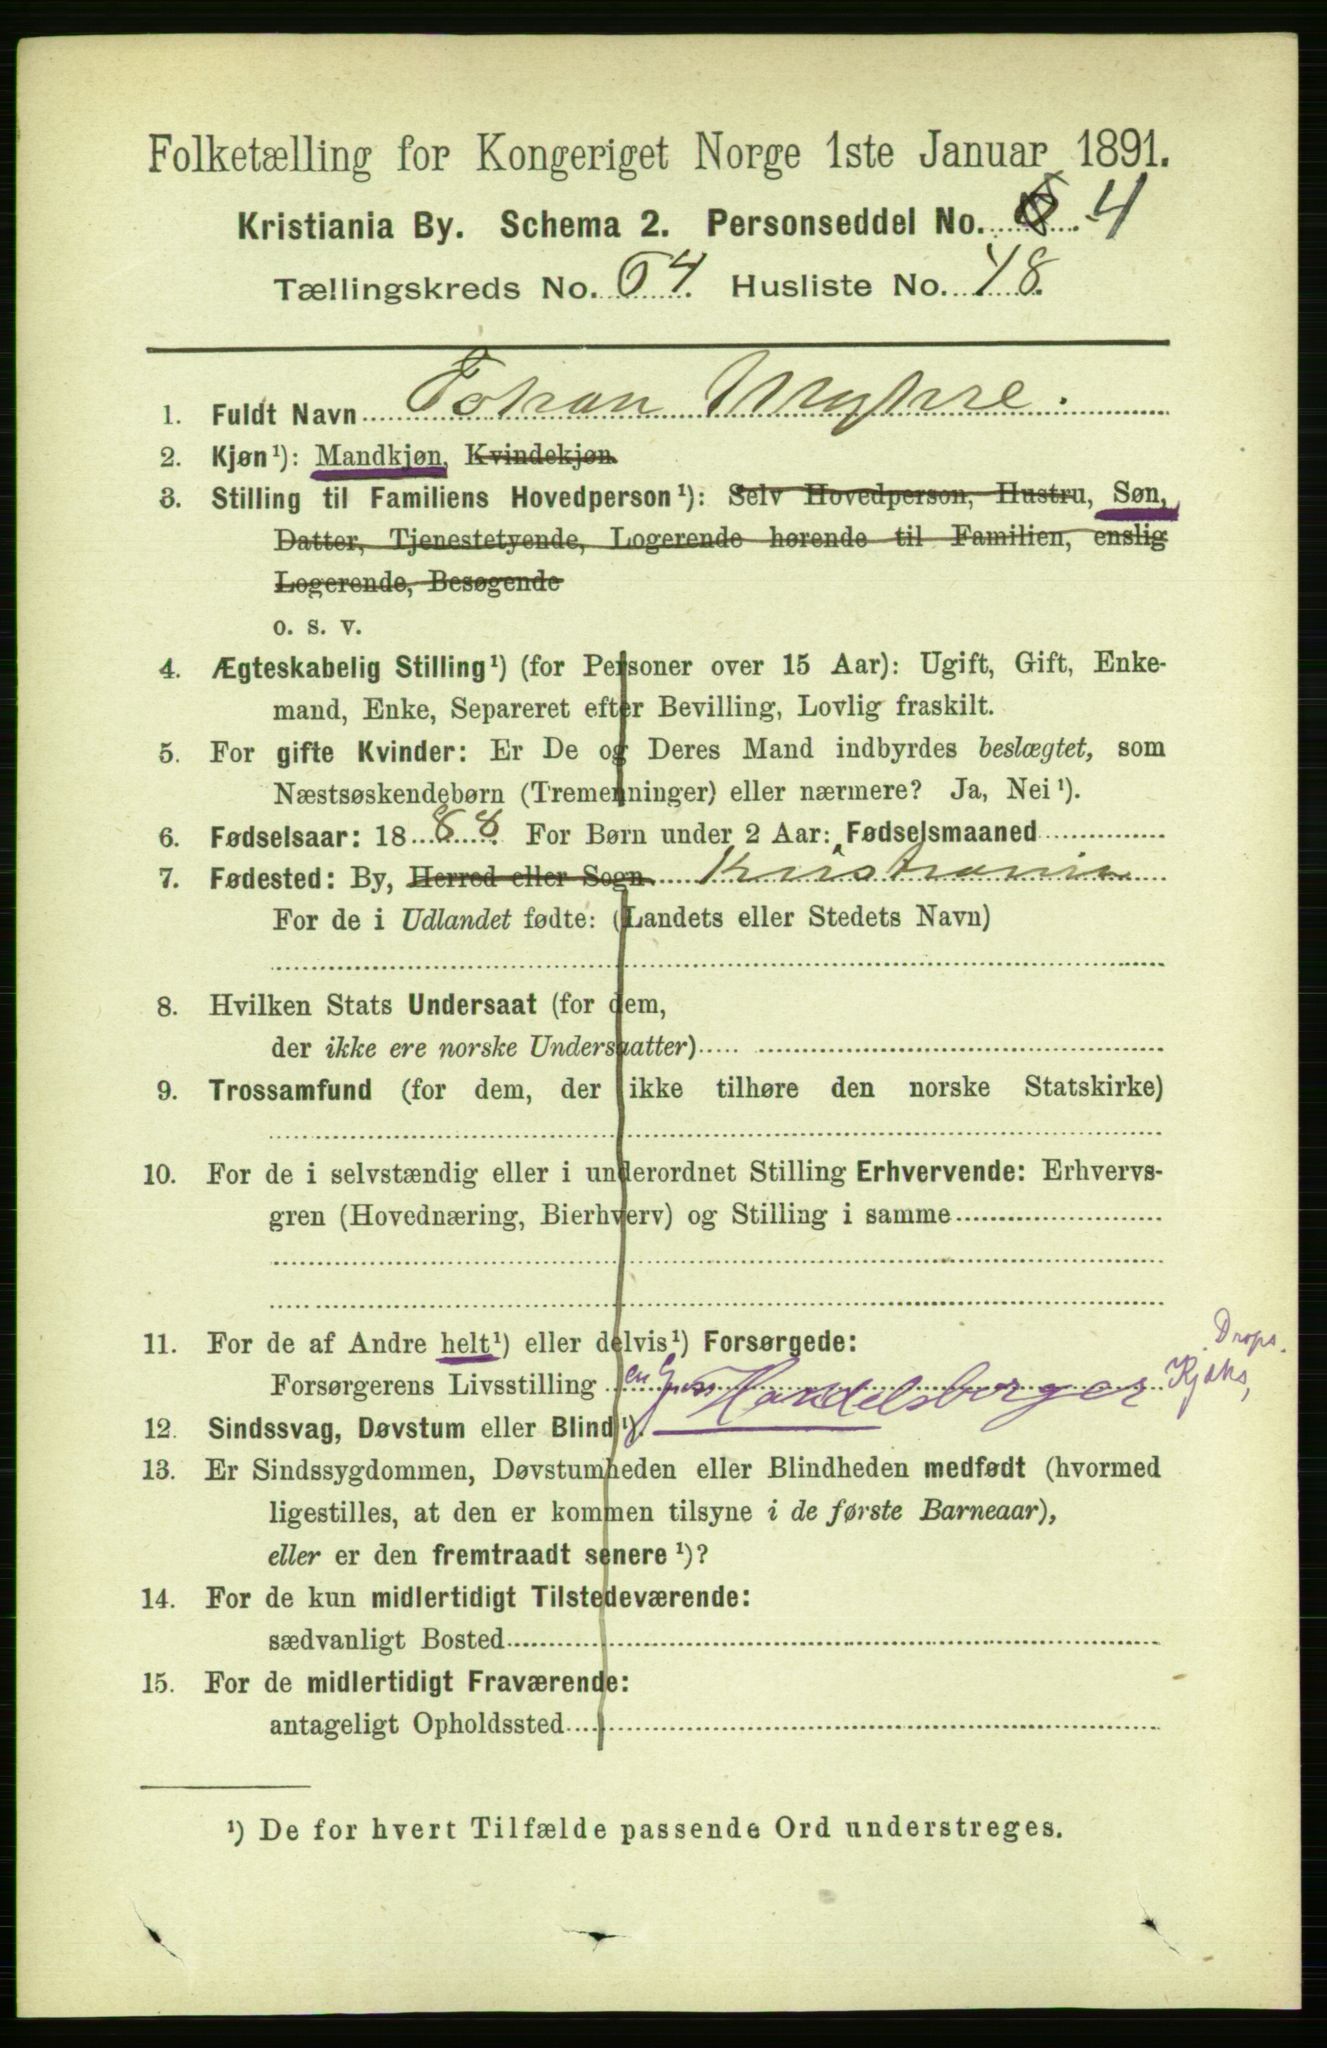 Folketælling for Kongeriget Norge 1ste Januar 1891.
Kristiania By. Schema 2. Personseddel No. 4
Tællingskreds No. 64. Husliste No. 48.
1. Fuldt Navn Johan Myhre.
2. Kjøn¹): Mandkjøn, Kvindekjøn.
3. Stilling til Familiens Hovedperson¹): Selv Hovedperson, Hustru, Søn,
Datter, Tjenestetyende, Logerende hørende til Familien, enslig
Logerende, Besøgende
o. s. v.
4. Ægteskabelig Stilling¹) (for Personer over 15 Aar): Ugift, Gift, Enke-
mand, Enke, Separeret efter Bevilling, Lovlig fraskilt.
5. For gifte Kvinder: Er De og Deres Mand indbyrdes beslægtet, som
Næstsøskendebørn (Tremenninger) eller nærmere? Ja, Nei¹).
6. Fødselsaar: 1888. For Børn under 2 Aar: Fødselsmaaned
7. Fødested: By, Herred eller Sogn. Kristiania
For de i Udlandet fødte: (Landets eller Stedets Navn)
8. Hvilken Stats Undersaat (for dem,
der ikke ere norske Undersaatter)
9. Trossamfund (for dem, der ikke tilhøre den norske Statskirke)
10. For de i selvstændig eller i underordnet Stilling Erhvervende: Erhvervs-
gren (Hovednæring, Bierhverv) og Stilling i samme
Drops.
11. For de af Andre helt¹) eller delvis¹) Forsørgede:
Forsørgerens Livsstilling en Handelsborger Kjøks,
12. Sindssvag, Døvstum eller Blind¹).
13. Er Sindssygdommen, Døvstumheden eller Blindheden medfødt (hvormed
ligestilles, at den er kommen tilsyne i de første Barneaar),
eller er den fremtraadt senere¹)?
14. For de kun midlertidigt Tilstedeværende:
sædvanligt Bosted
15. For de midlertidigt Fraværende:
antageligt Opholdssted
¹) De for hvert Tilfælde passende Ord understreges.